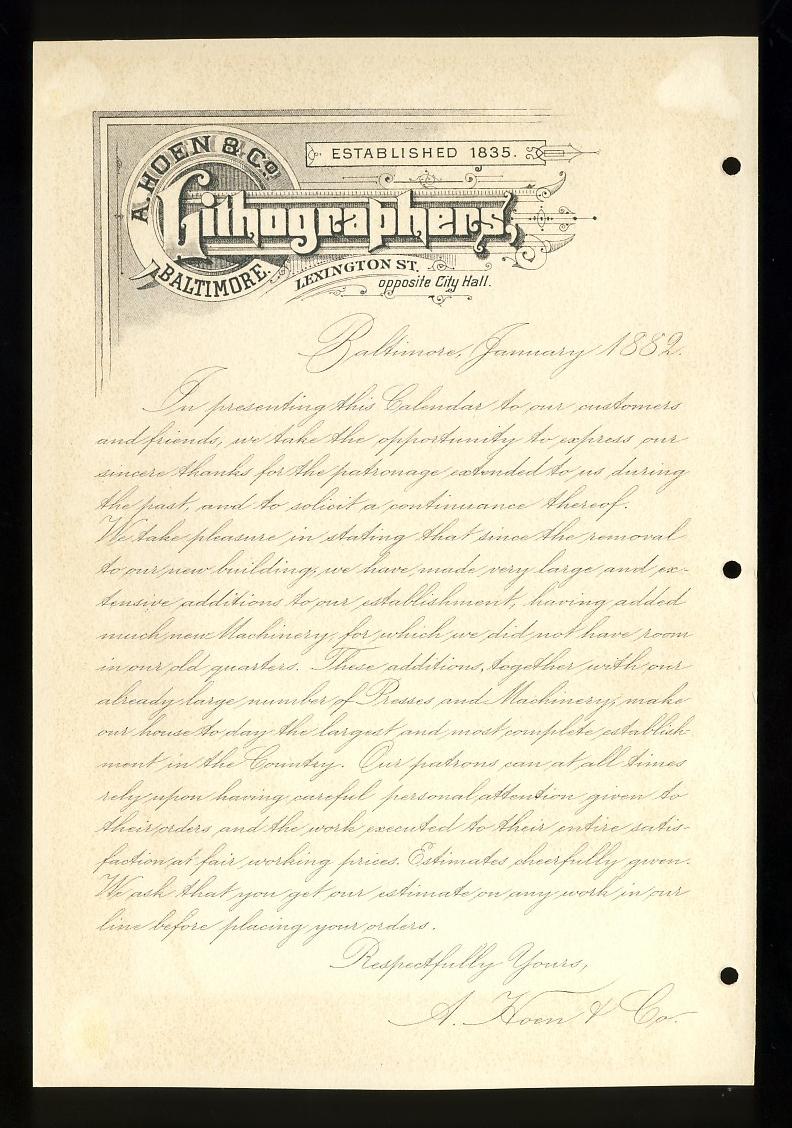 A. HOEN & Co.
ESTABLISHED 1835.
Lithographers,
BALTIMORE.
LEXINGTON ST.
opposite City Hall.
Baltimore, January 1882.
In presenting this Calendar to our customers
and friends, we take the opportunity to express our
sincere thanks for the patronage extended to us during
the past, and to solicit a continuance thereof.
We take pleasure in stating that since the removal
to our new building, we have made very large and ex-
tensive additions to our establishment, having added
much new Machinery, for which we did not have room
in our old quarters. These additions, together with our
already large number of Presses and Machinery, make
our house to day the largest and most complete establish-
ment in the Country. Our patrons can at all times
rely upon having careful personal attention given to
their orders and the work executed to their entire satis-
faction at fair working prices. Estimates cheerfully given.
We ask that you get our estimate on any work in our
line before placing your orders.
Respectfully Yours,
A. Hoen & Co.